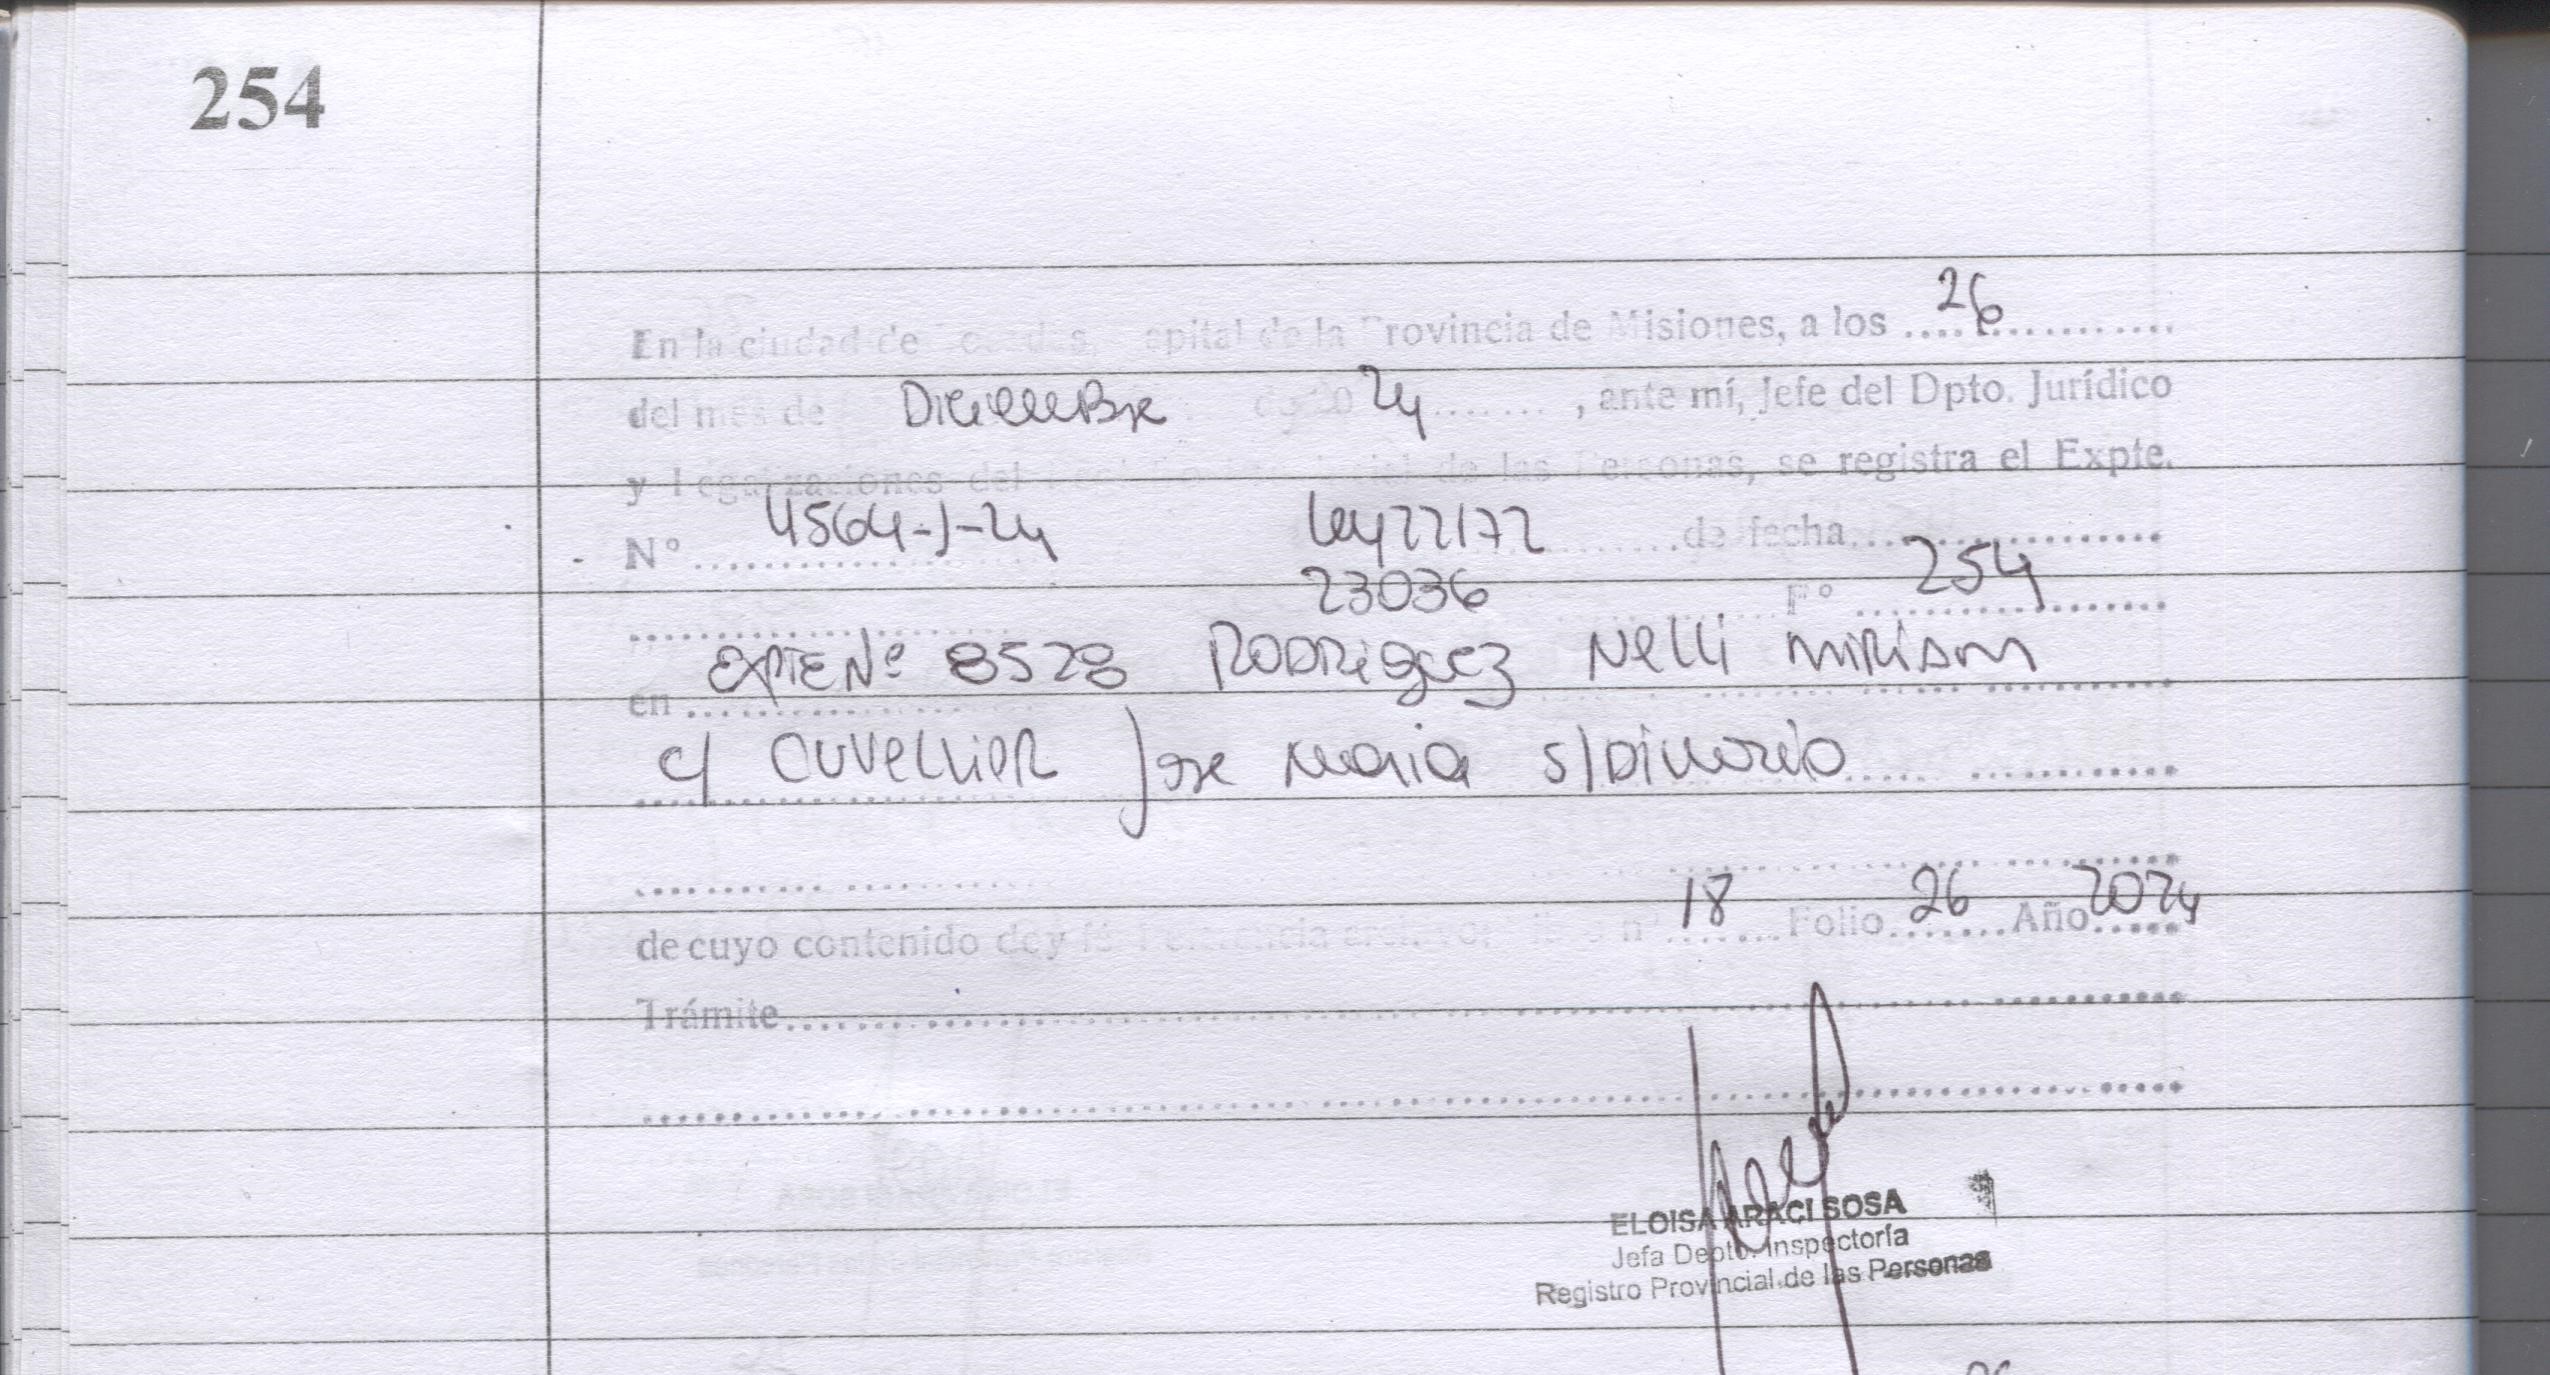 254
En la ciudad de Posadas, Capital de la Provincia de Misiones, a los 26
del mes de Diciembre de 20 24, ante mí, Jefe del Dpto. Jurídico
y Legalizaciones del de las Personas, se registra el Expte.
Nº 4564-J-24 Ley 22172 de fecha
23036 Fº 254
en EXPTE Nº 8528 RODRIGUEZ NELLI MIRIAM
c/ CUVELLIER Jose Maria S/Divorcio
de cuyo contenido doy fé. Referencia nº 18 Folio 26 Año 2024
Trámite
ELOISA ARACI SOSA
Jefa Depto. Inspectoría
Registro Provincial de las Personas